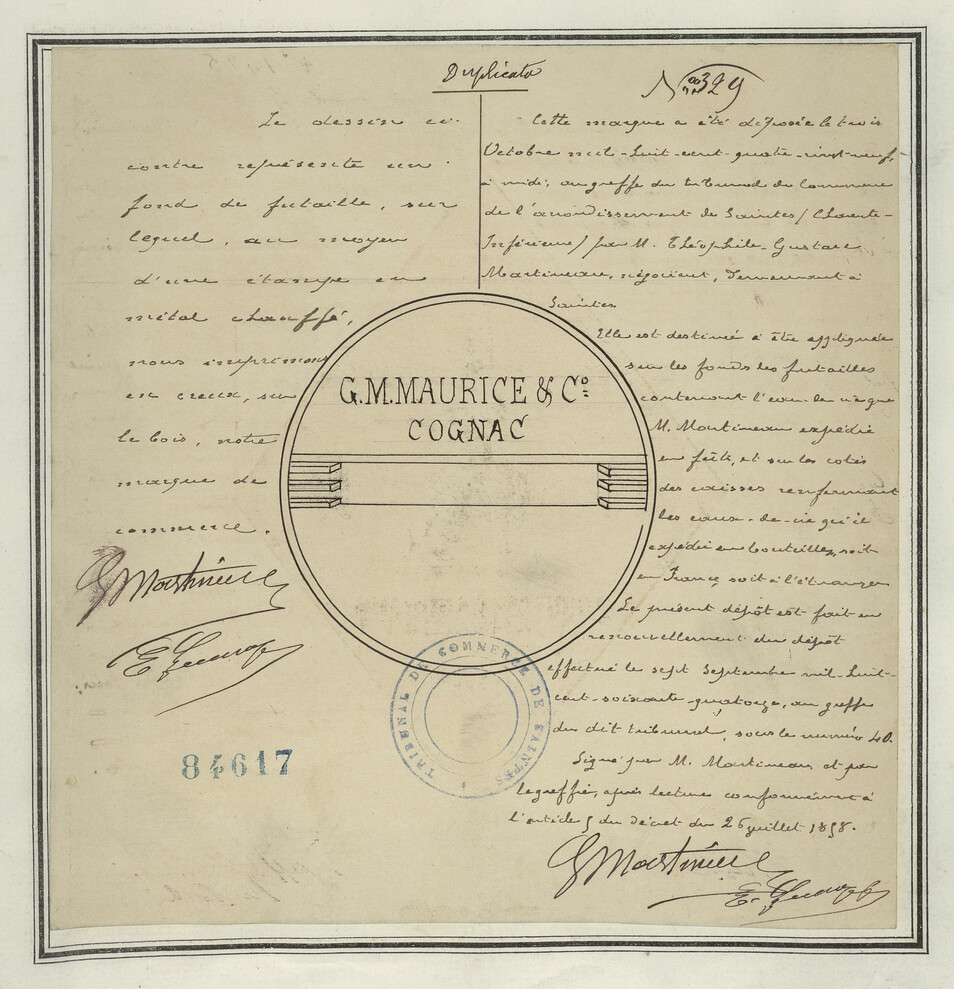 Duplicata
Nº 329
Le dessin ci-
contre représente un
fond de futaille, sur
lequel, au moyen
d'une étampe en
métal chauffé,
nous imprimons
en creux, sur
le bois, notre
marque de
commerce.
GMartineau
Cette marque a été déposée le trois
Octobre mil-huit-cent-quatre-vingt-neuf,
à midi, au greffe du tribunal de Commerce
de l'arrondissement de Saintes (Charente-
Inférieure) par M. Théophile-Gustave
Martineau, négociant, demeurant à
Saintes.
Elle est destinée à être appliquée
sur les fonds des futailles
contenant l'eau-de-vie que
M. Martineau expédie
en fûts, et sur les cotés
des caisses renfermant
les eaux-de-vie qu'il
expédie en bouteilles, soit
en France soit à l'étranger
Le présent dépôt est fait en
renouvellement du dépôt
effectué le sept Septembre mil-huit-
cent-soixante-quatorze, au greffe
du dit tribunal, sous le numéro 40.
Signé par M. Martineau et par
le greffier, après lecture conformément à
l'article 5 du décret du 26 juillet 1858.
GMartineau
G.M.MAURICE & Cº
COGNAC
TRIBUNAL DE COMMERCE DE SAINTES
84617